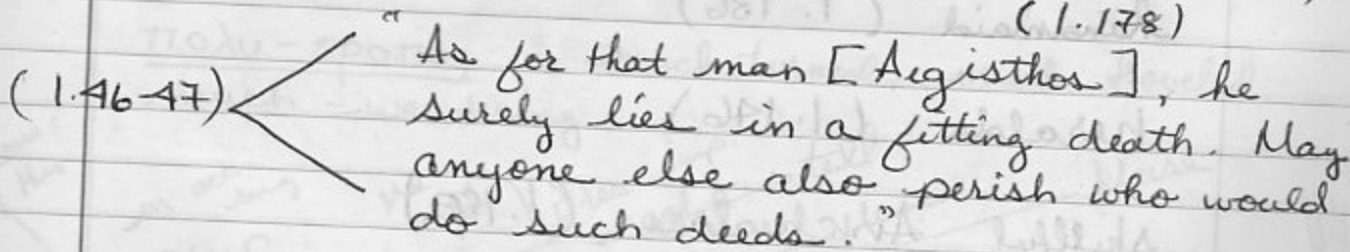 (1.178)
" As for that man [Aegisthos], he
(1.46-47) surely lies in a fitting death. May
anyone else also perish who would
do such deeds."